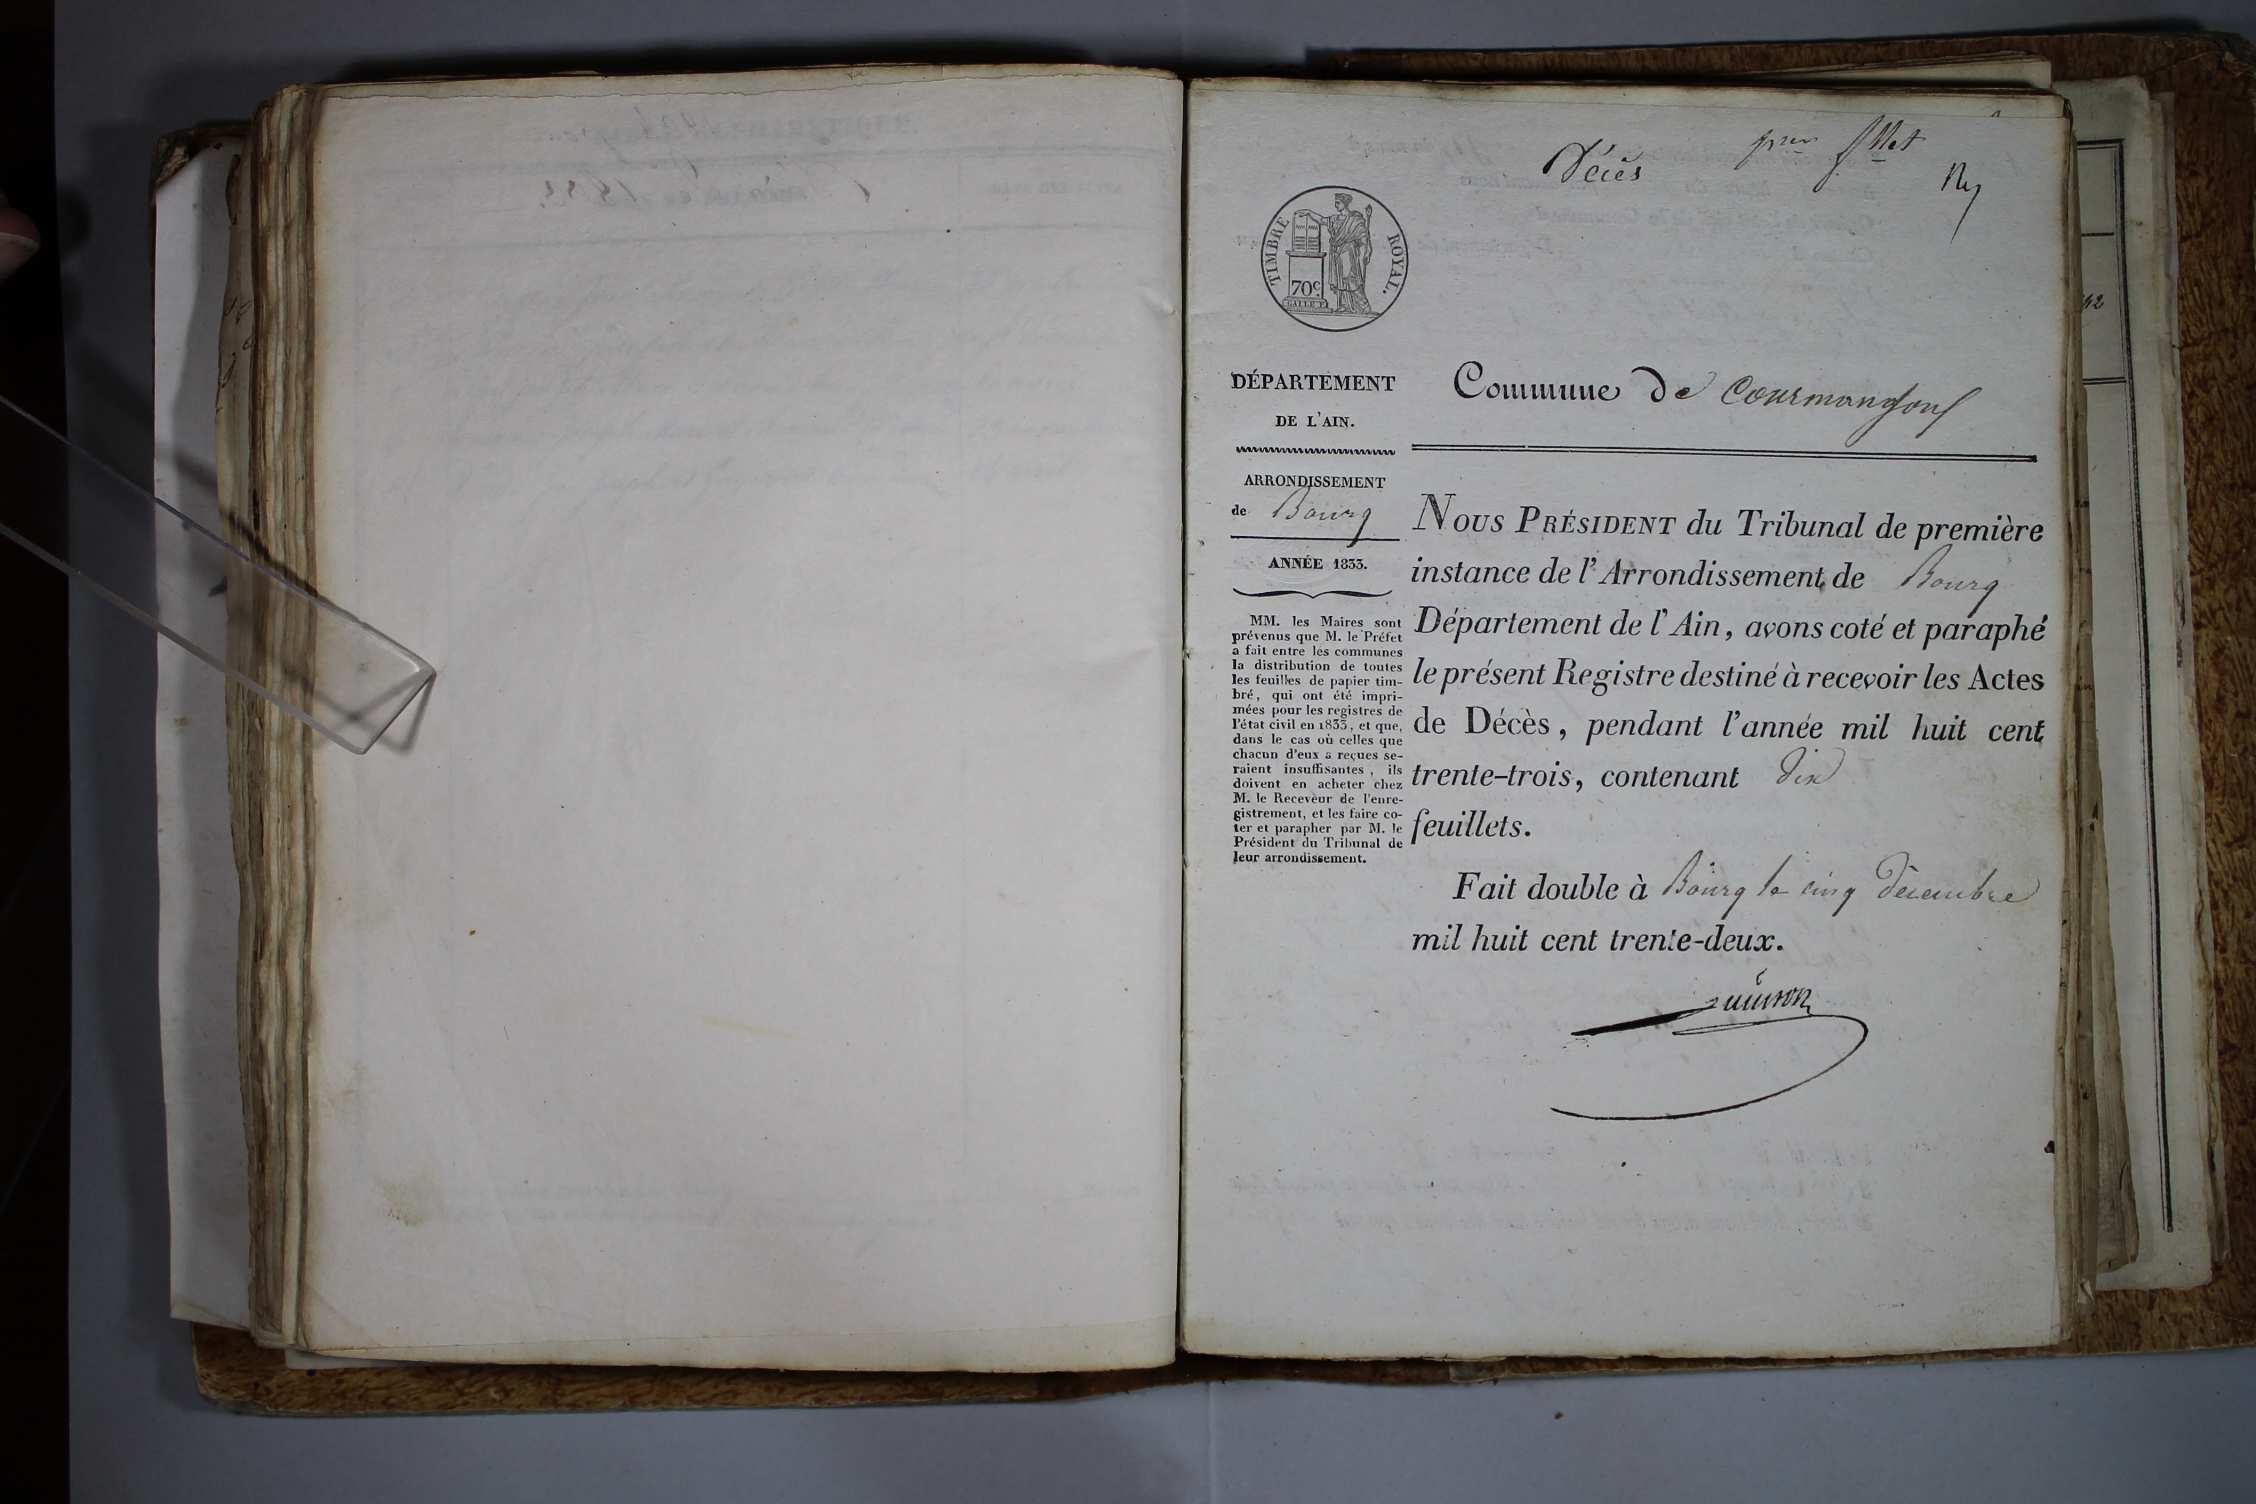 Décès
pier fllet
TIMBRE ROYAL.
70c
GALLE F.
DÉPARTEMENT
DE L'AIN.
Commune de Courmangoux
ARRONDISSEMENT
de Bourg
ANNÉE 1833.
MM. les Maires sont
prévenus que M. le Préfet
a fait entre les communes
la distribution de toutes
les feuilles de papier tim-
bré, qui ont été impri-
mées pour les registres de
l'état civil en 1833, et que,
dans le cas où celles que
chacun d'eux a reçues se-
raient insuffisantes, ils
doivent en acheter chez
M. le Receveur de l'enre-
gistrement, et les faire co-
ter et parapher par M. le
Président du Tribunal de
leur arrondissement.
NOUS PRÉSIDENT du Tribunal de première
instance de l'Arrondissement de Bourg
Département de l'Ain, avons coté et paraphé
le présent Registre destiné à recevoir les Actes
de Décès, pendant l'année mil huit cent
trente-trois, contenant dix
feuillets.
Fait double à Bourg le cinq décembre
mil huit cent trente-deux.